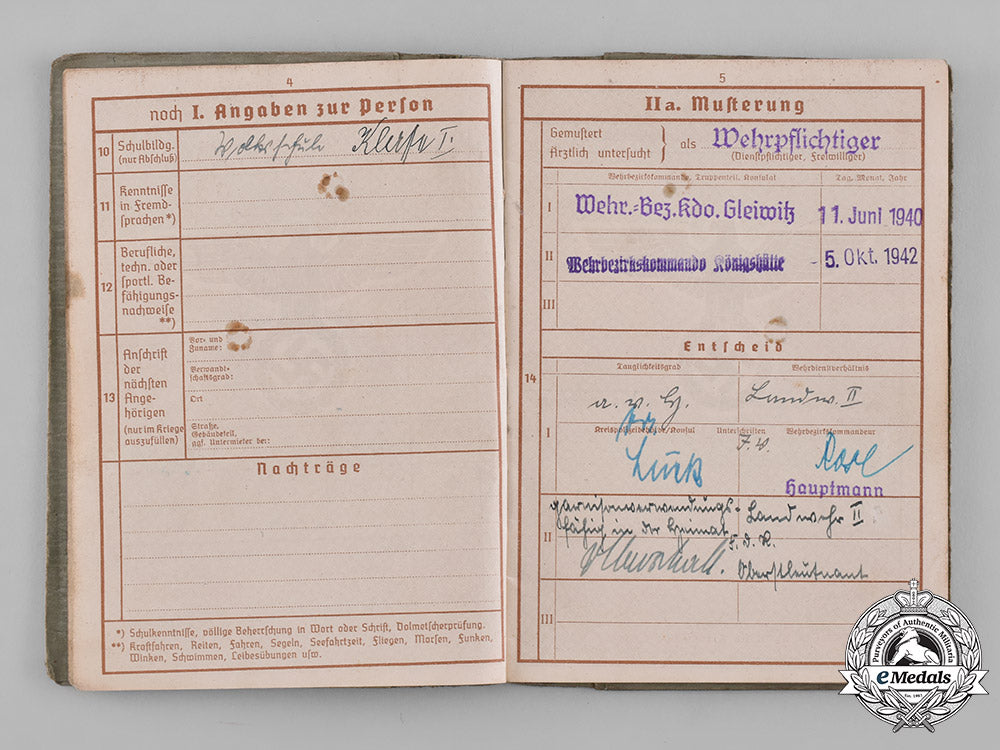 4
noch I. Angaben zur Person
10 Schulbildg. (nur Abschluß)
Volksschule Klasse I.
11 Kenntnisse in Fremdsprachen *)
12 Berufliche, techn. oder sportl. Befähigungsnachweise **)
13 Anschrift der nächsten Angehörigen (nur im Kriege auszufüllen)
Vor- und Zuname:
Verwandtschaftsgrad:
Ort
Straße, Gebäudeteil, ggf. Untermieter bei:
Nachträge
*) Schulkenntnisse, völlige Beherrschung in Wort oder Schrift, Dolmetscherprüfung.
**) Kraftfahren, Reiten, Fahren, Segeln, Seefahrtzeit, Fliegen, Morsen, Funken,
Winken, Schwimmen, Leibesübungen usw.
5
IIa. Musterung
Gemustert
Ärztlich untersucht } als Wehrpflichtiger
(Dienstpflichtiger, Freiwilliger)
Wehrbezirkskommando, Truppenteil, Konsulat Tag, Monat, Jahr
I Wehr.=Bez.Kdo. Gleiwitz 11. Juni 1940
II Wehrbezirkskommando Königshütte - 5. Okt. 1942
III
Entscheid
14 Tauglichkeitsgrad Wehrdienstverhältnis
a. v. H. Landw. II
I Kreispolizeibehörde/Konsul Unterschriften Wehrbezirkskommandeur
J. V.
Hauptmann
II garnisonverwendungs- Landwehr II
fähig in der Heimat
F. d. R.
Oberstleutnant
III
Purveyors of Authentic Militaria
eMedals
Est. 1967